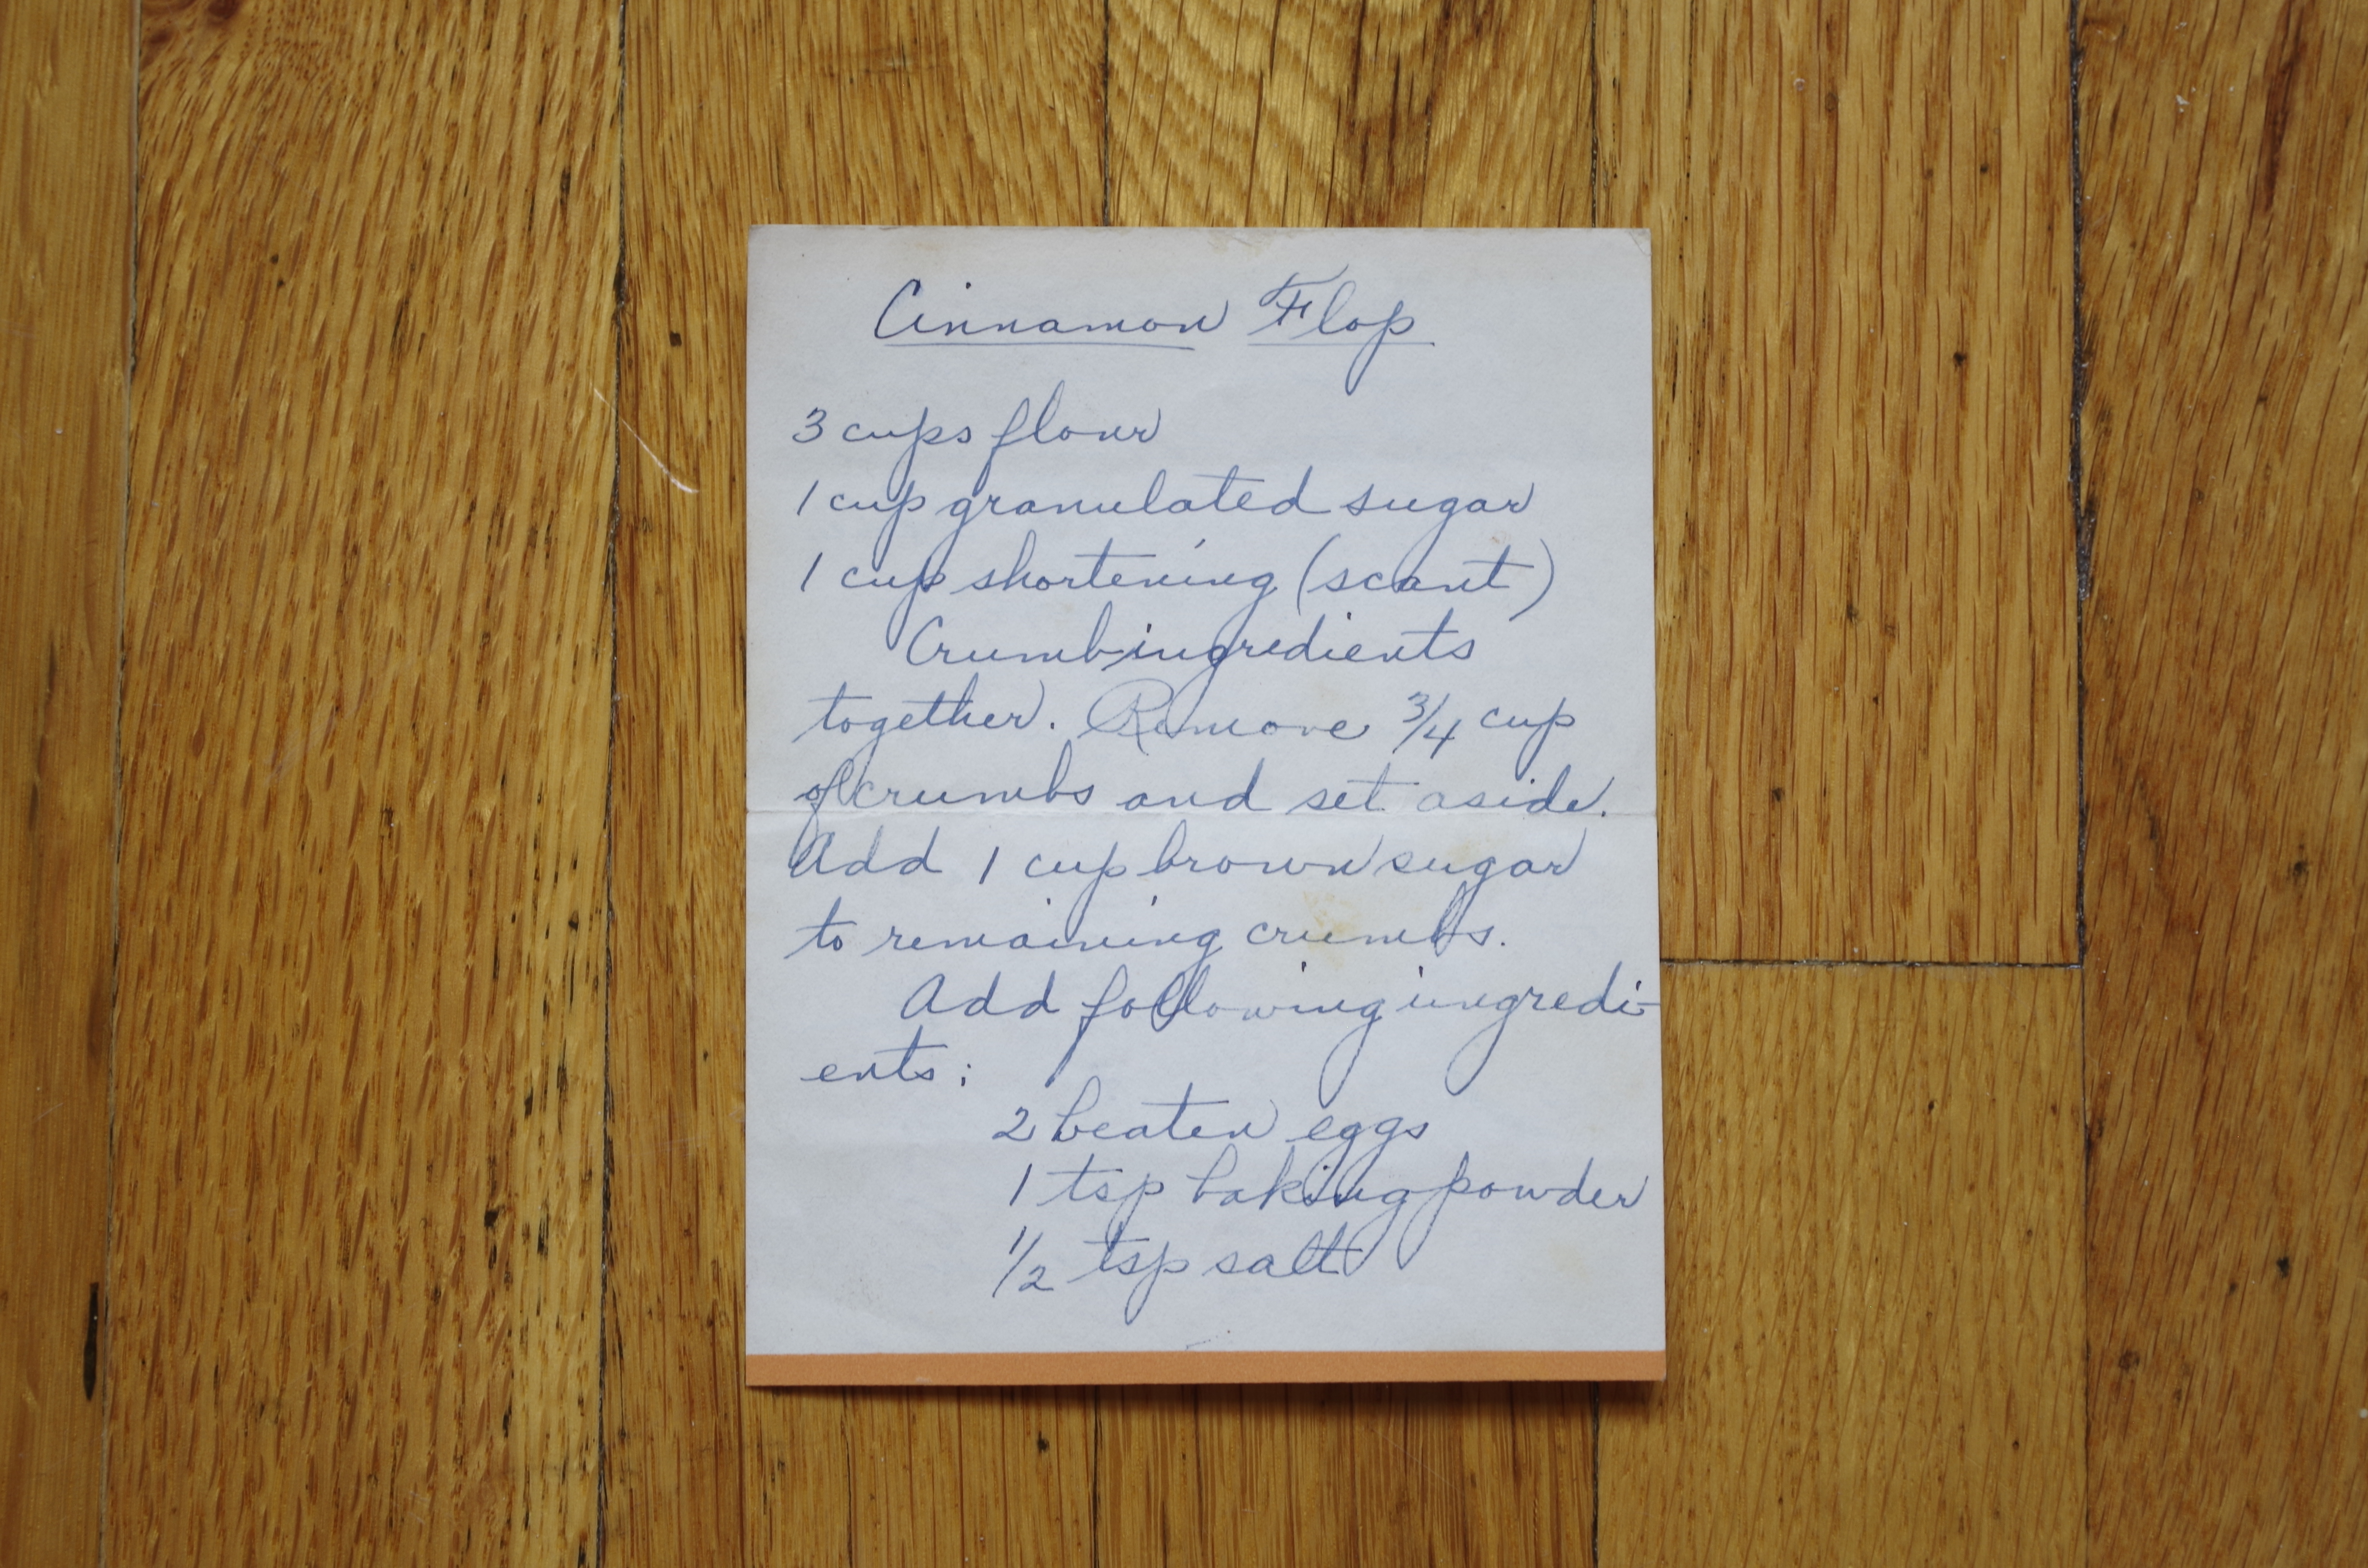 Cinnamon Flop
3 cups flour
1 cup granulated sugar
1 cup shortening (scant)
Crumb ingredients
together. Remove 3/4 cup
of crumbs and set aside.
Add 1 cup brown sugar
to remaining crumbs.
Add following ingredi-
ents:
2 beaten eggs
1 tsp baking powder
1/2 tsp salt